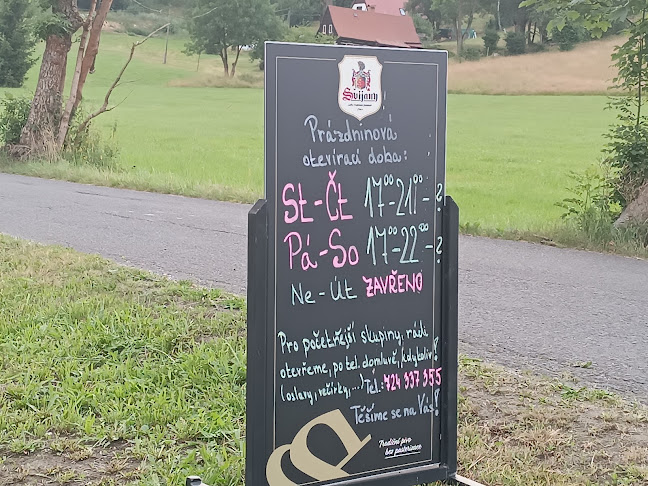 Svijany
Prázdninová
otevírací doba:
St-Čt 17⁰⁰-21⁰⁰-?
Pá-So 17⁰⁰-22⁰⁰-?
Ne-Út ZAVŘENO
Pro početnější skupiny, rádi
otevřeme, po tel. domluvě, kdykoliv!
(oslavy, večírky,...) Tel.: 724 337 355
Těšíme se na Vás!
Tradiční pivo
bez pasterizace